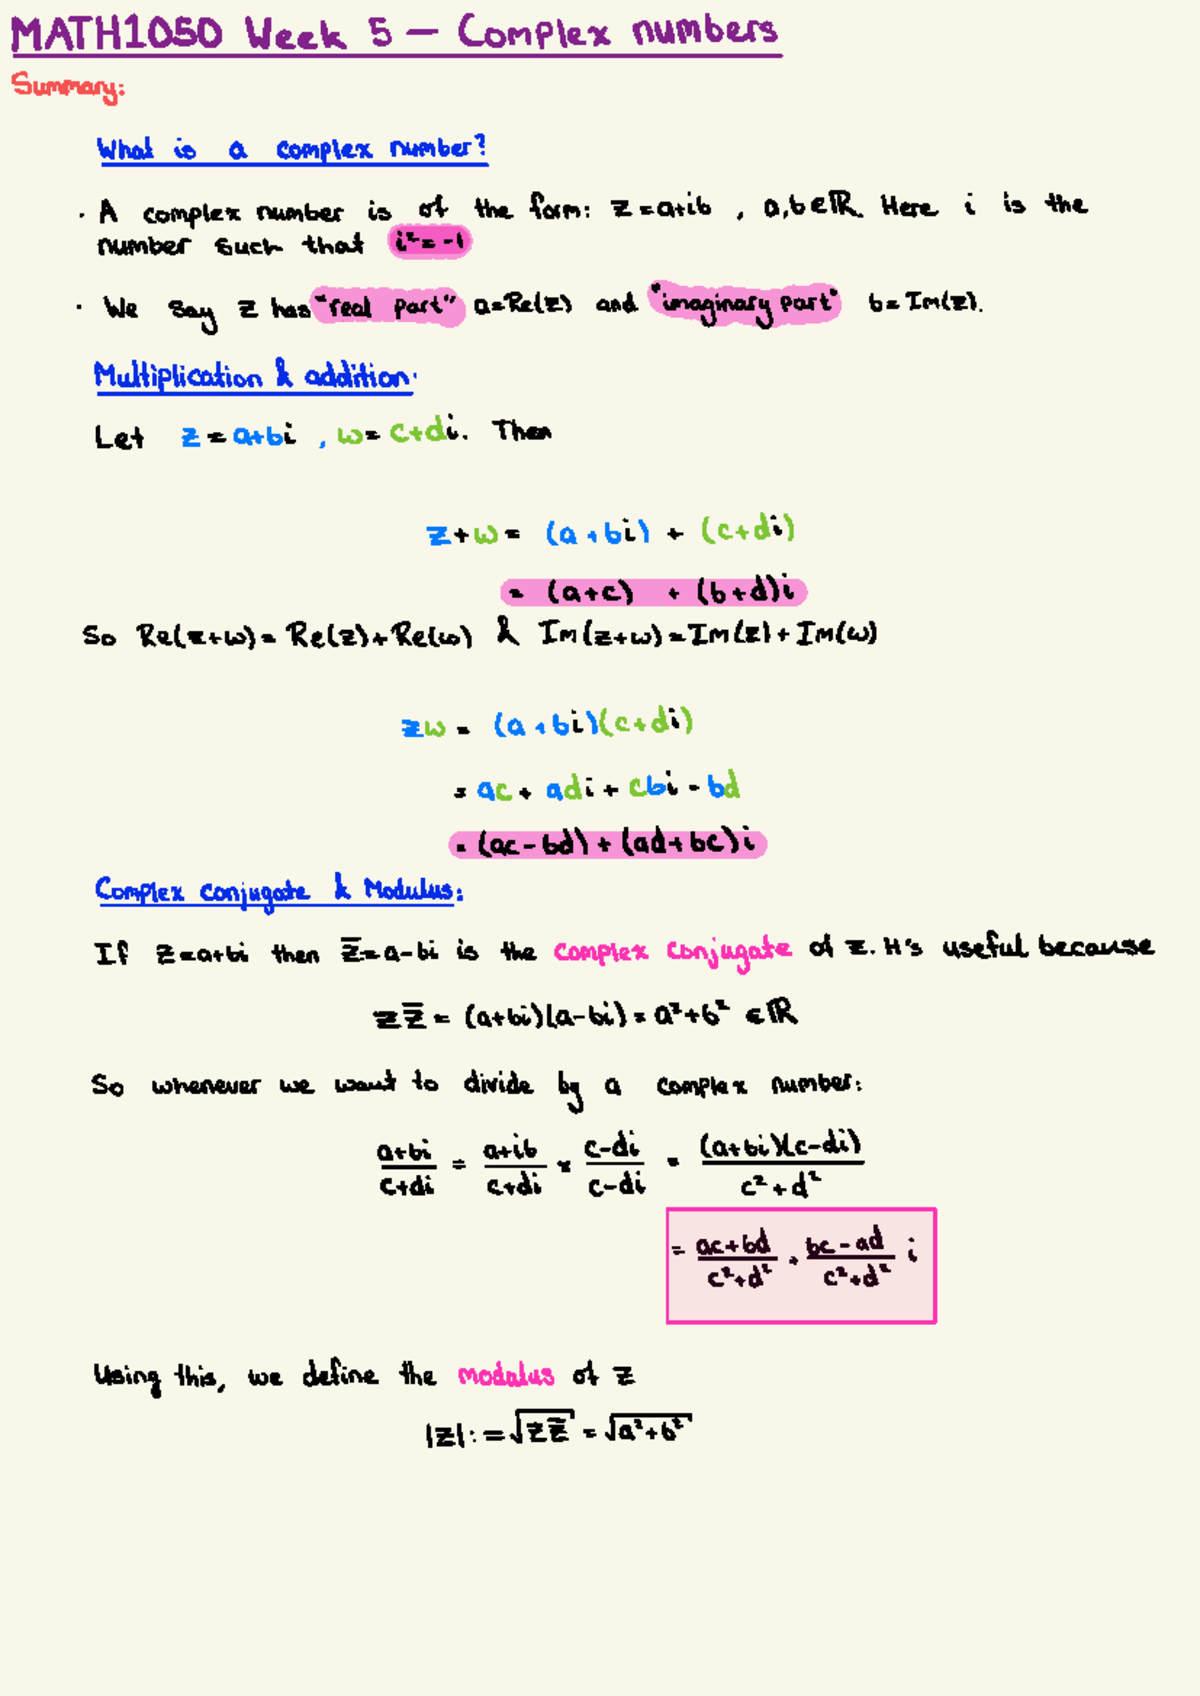 MATH1050 Week 5 — Complex numbers
Summary:
What is a complex number?
· A complex number is of the form: z=a+ib , a,b∈ℝ. Here i is the
number such that i²=-1
· We say z has "real part" a=Re(z) and "imaginary part" b=Im(z).
Multiplication & addition:
Let z=a+bi , w=c+di. Then
z+w= (a+bi) + (c+di)
= (a+c) + (b+d)i
So Re(z+w)=Re(z)+Re(w) & Im(z+w)=Im(z)+Im(w)
zw = (a+bi)(c+di)
= ac + adi + cbi - bd
= (ac-bd)+(ad+bc)i
Complex conjugate & Modulus:
If z=a+bi then z̅=a-bi is the complex conjugate of z. It's useful because
zz̅ = (a+bi)(a-bi) = a²+b² ∈ℝ
So whenever we want to divide by a complex number:
(a+bi)/(c+di) = (a+ib)/(c+di) × (c-di)/(c-di) = (a+bi)(c-di)/(c²+d²)
= (ac+bd)/(c²+d²) + (bc-ad)/(c²+d²) i
Using this, we define the modulus of z
|z| := √(zz̅) = √(a²+b²)